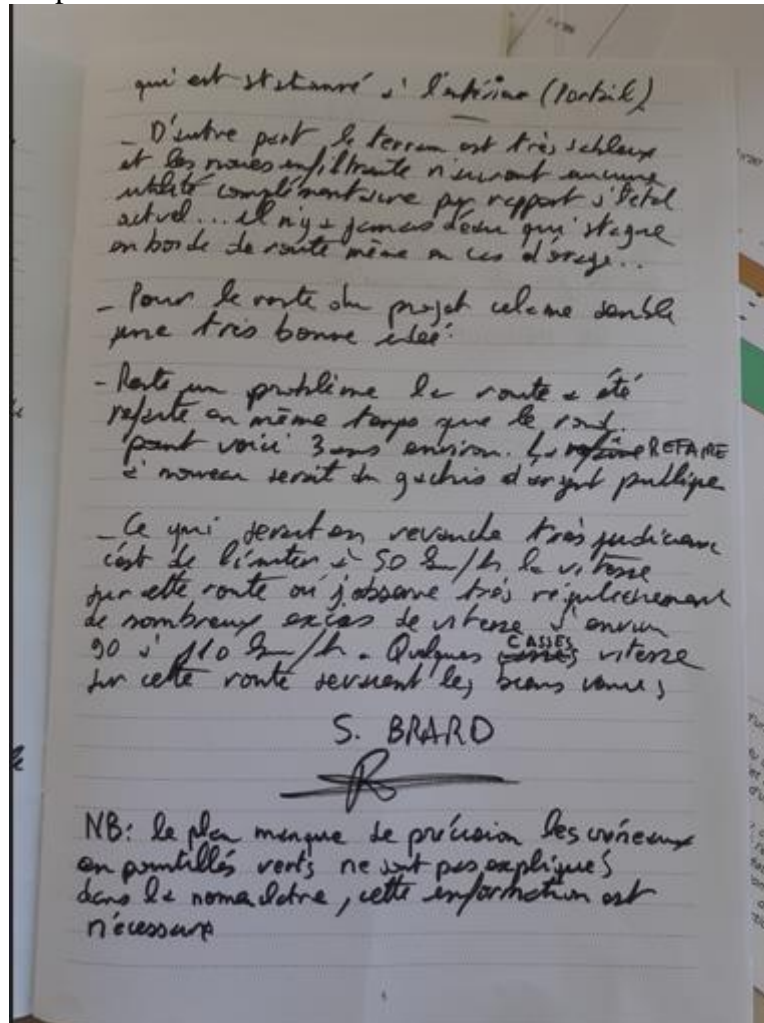 qui est stationné à l'intérieur (Portail)
- D'autre part le terrain est très sableux
et les noues infiltrante n'auront aucune
utilité complémentaire par rapport à l'état
actuel... il n'y a jamais d'eau qui stagne
en borde de route même en cas d'orage..
- Pour le reste du projet cela me semble
une très bonne idée.
- Reste un problème la route a été
refaite en même temps que le rond.
point voici 3 ans environ. La REFAIRE
à nouveau serait du gachis d'argent publique
- Ce qui serait en revanche très judicieux
c'est de limiter à 50 km/h la vitesse
sur cette route où j'observe très régulièrement
de nombreux excès de vitesse d'environ
90 à 110 km/h. Quelques CASSES vitesse
sur cette route seraient les biens venus
S. BRARD
NB: le plan manque de précision les créneaux
en pointillés verts ne sont pas expliqués
dans la , cette information est
nécessaire